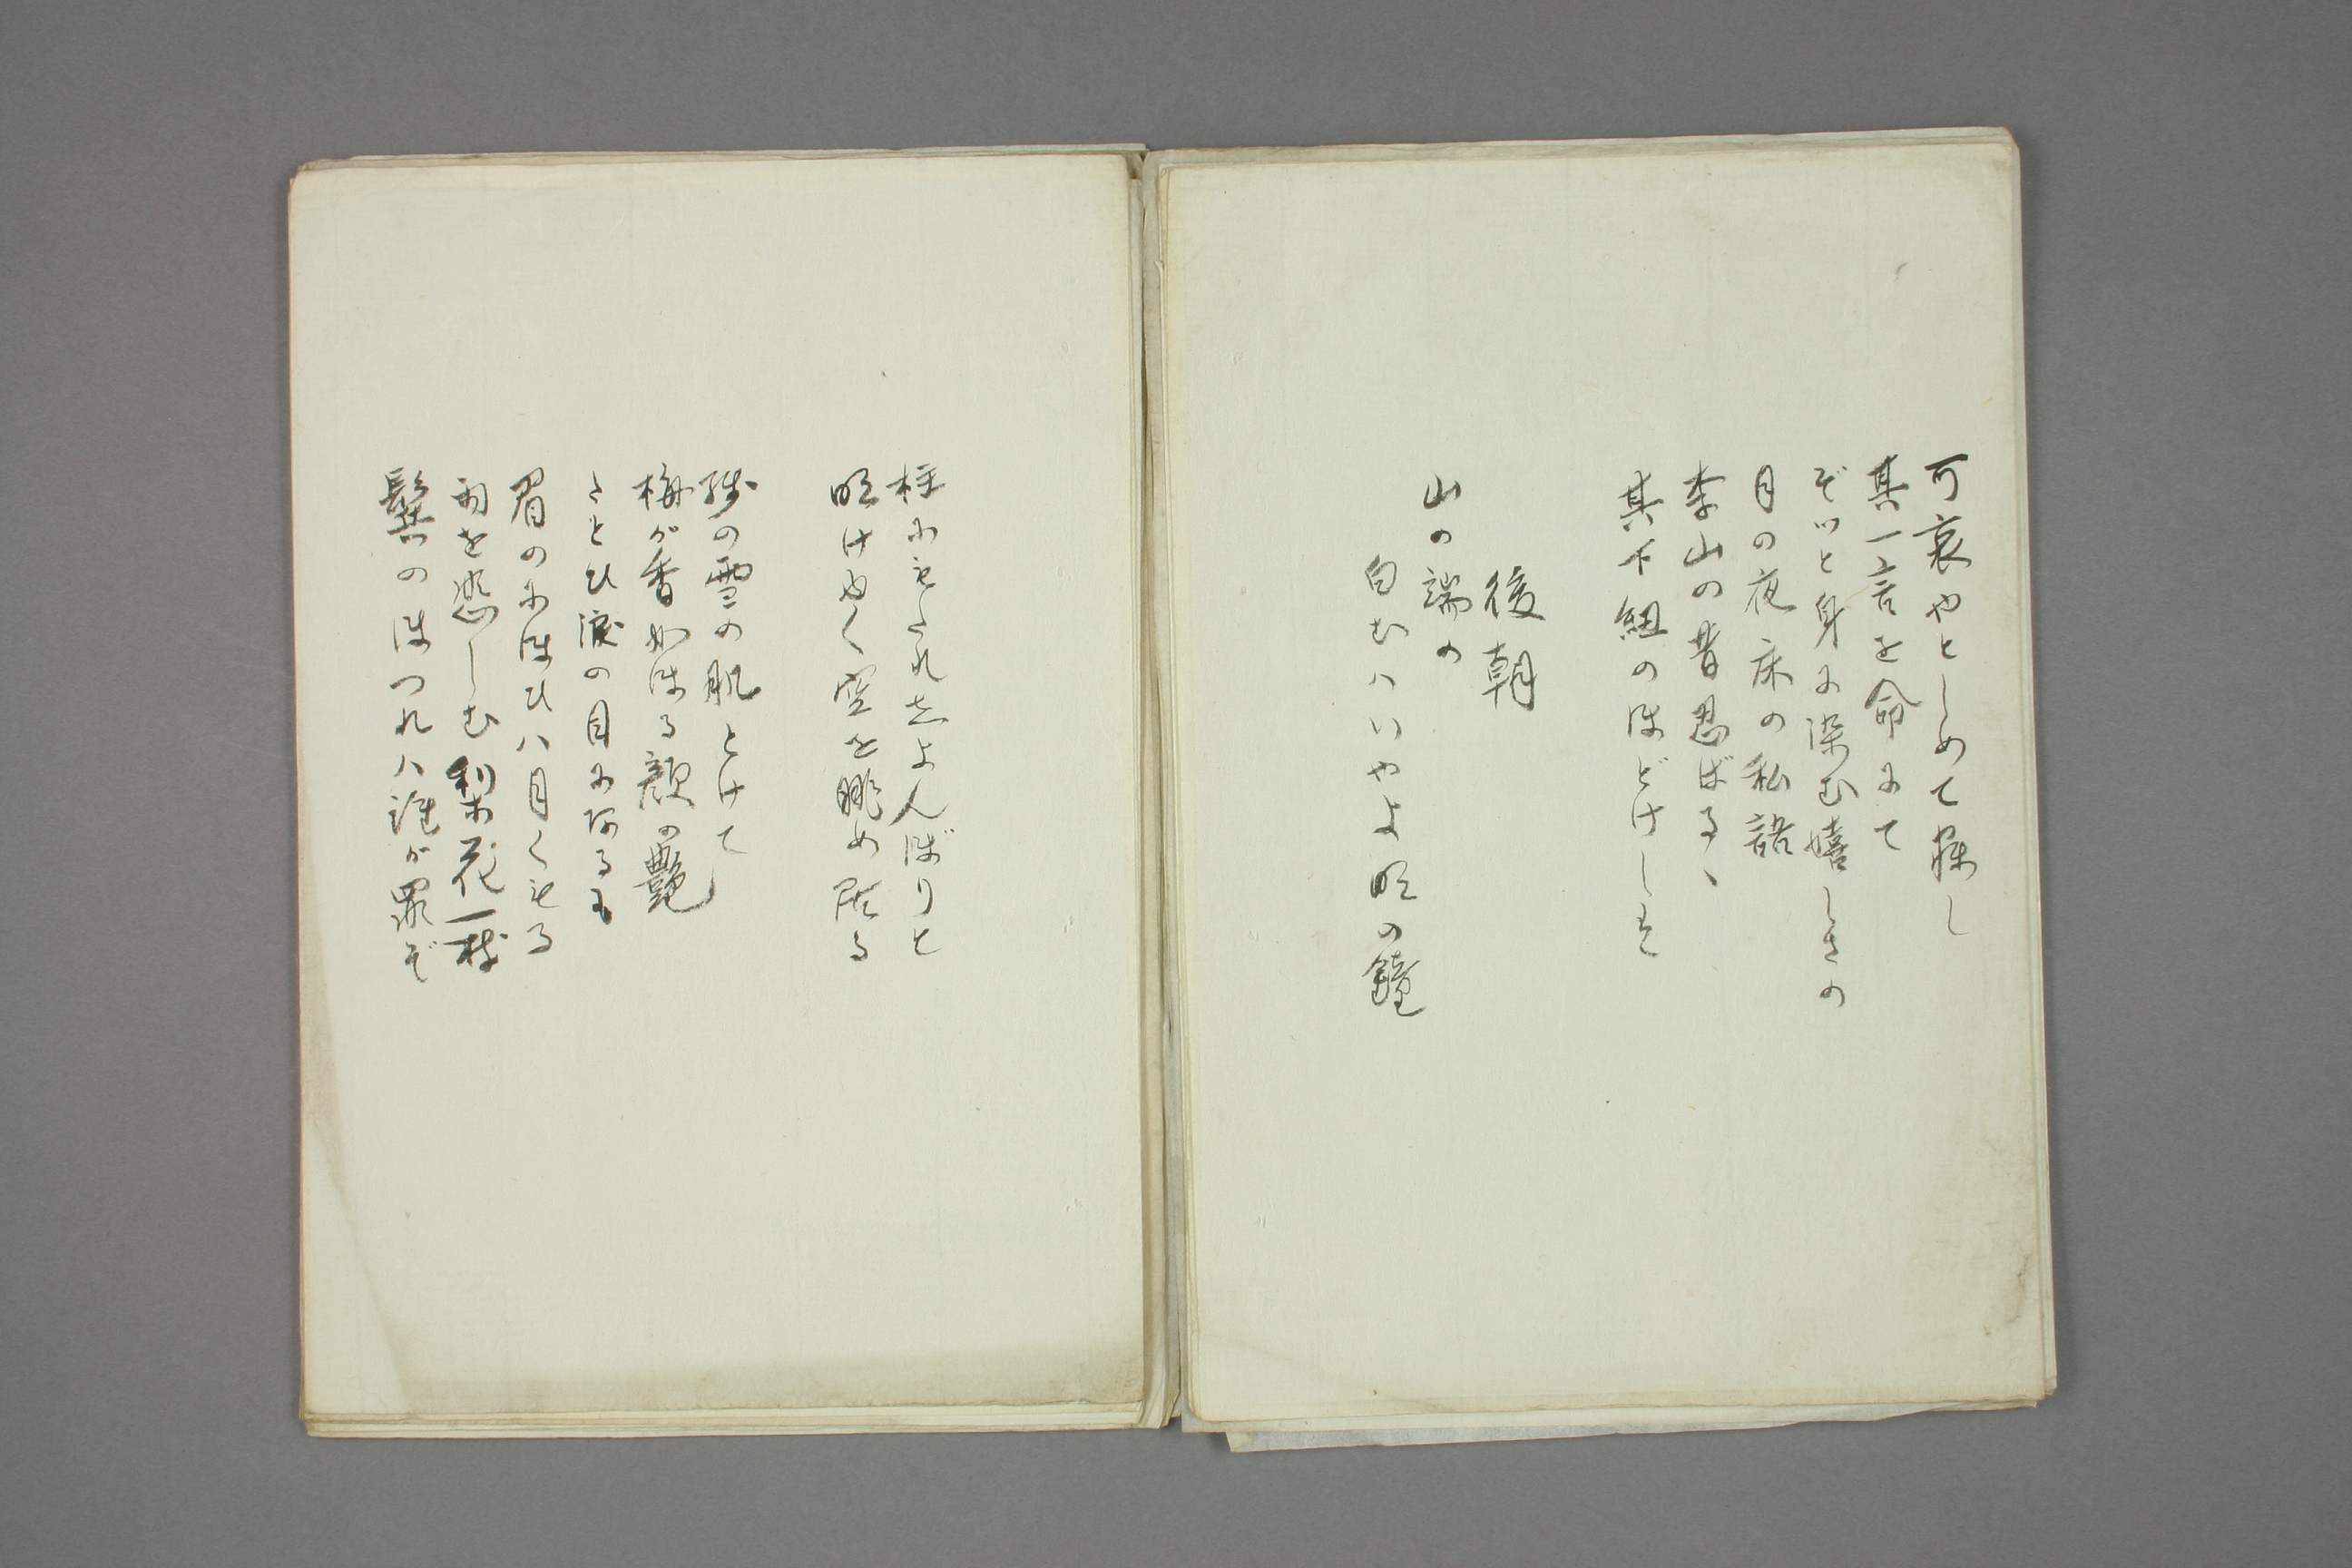 可哀やとしめて探し
其一言を命にて
ぞツと身に染む嬉しさの
月の夜床の私語
李山の昔忍ばるゝ
其下紐のほどけしを
後朝
山の端の
白むハいやよ明の鐘
柱にもたれしよんぼりと
明けゆく空を眺め居る
残の雪の肌とけて
梅が香かほる顔の艶
たとひ涙の目になるも
眉のにほひハ目くもる
雨を愁しむ梨花一枝
鬢のほつれハ誰が罪ぞ